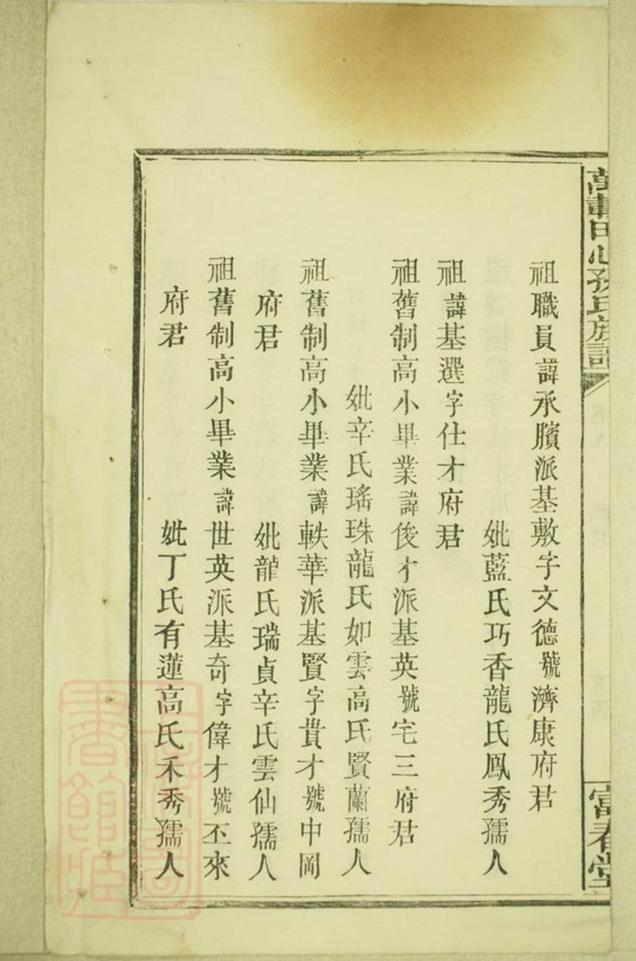 萬載田心孫氏族譜
富春堂
祖職員諱承臏派基敷字文德號濟康府君
妣藍氏巧香龍氏鳳秀孺人
祖諱基選字仕才府君
祖舊制高小畢業諱俊才派基英號宅三府君
妣辛氏瑤珠龍氏如雲高氏賢蘭孺人
祖舊制高小畢業諱軼華派基賢字貴才號中岡
府君 妣龍氏瑞貞辛氏雲仙孺人
祖舊制高小畢業諱世英派基奇字偉才號丕來
府君 妣丁氏有蓮高氏禾秀孺人